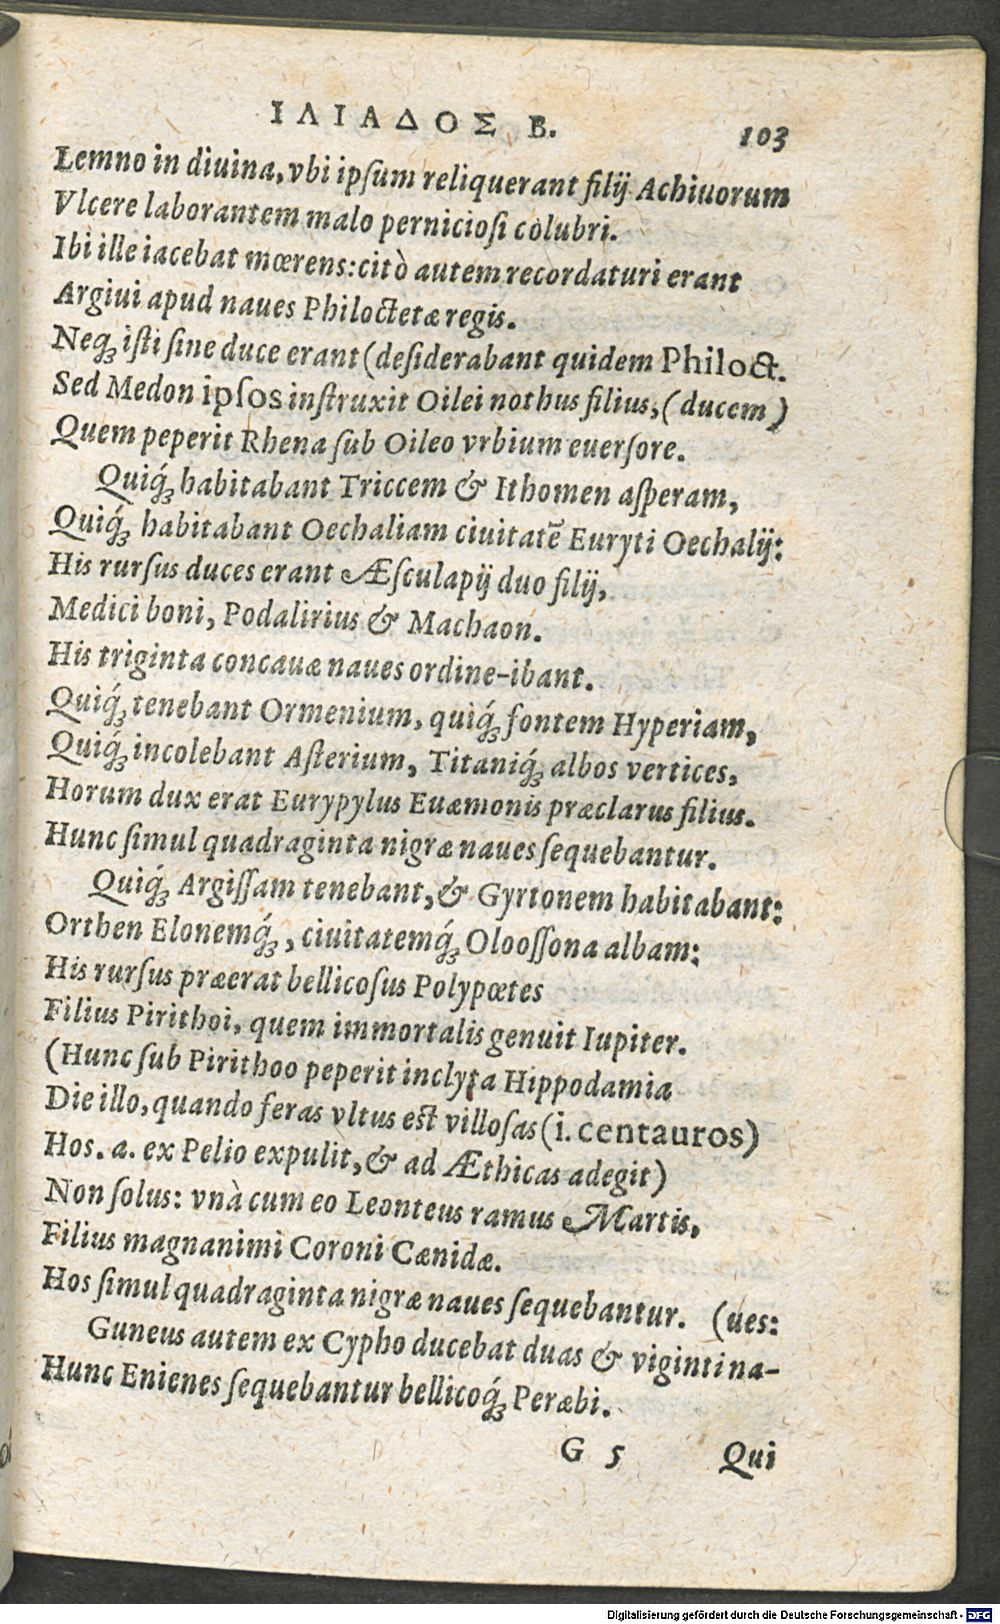 ΙΛΙΑΔΟΣ Β. 103
Lemno in diuina, vbi ipſum reliquerant filij Achiuorum
Vlcere laborantem malo pernicioſi colubri.
Ibi ille iacebat mœrens: citò autem recordaturi erant
Argiui apud naues Philoctetæ regis.
Neq́ꝫ iſti ſine duce erant (deſiderabant quidem Philoct.
Sed Medon ipſos inſtruxit Oilei nothus filius, (ducem)
Quem peperit Rhena ſub Oileo vrbium euerſore.
Quiq́ꝫ habitabant Triccem & Ithomen aſperam,
Quiq́ꝫ habitabant Oechaliam ciuitatē Euryti Oechalij:
His rurſus duces erant Æſculapij duo filij,
Medici boni, Podalirius & Machaon.
His triginta concauæ naues ordine-ibant.
Quiq́ꝫ tenebant Ormenium, quiq́ꝫ fontem Hyperiam,
Quiq́ꝫ incolebant Aſterium, Titaniq́ꝫ albos vertices,
Horum dux erat Eurypylus Euæmonis præclarus filius.
Hunc ſimul quadraginta nigræ naues ſequebantur.
Quiq́ꝫ Argiſſam tenebant, & Gyrtonem habitabant:
Orthen Elonemq́ꝫ, ciuitatemq́ꝫ Olooſſona albam:
His rurſus præerat bellicoſus Polypœtes
Filius Pirithoi, quem immortalis genuit Iupiter.
(Hunc ſub Pirithoo peperit inclyta Hippodamia
Die illo, quando feras vltus eſt villoſas (i. centauros)
Hos. a. ex Pelio expulit, & ad Æthicas adegit)
Non ſolus: vnà cum eo Leonteus ramus Martis,
Filius magnanimi Coroni Cænidæ.
Hos ſimul quadraginta nigræ naues ſequebantur. (ues:
Guneus autem ex Cypho ducebat duas & viginti na-
Hunc Enienes ſequebantur bellicoq́ꝫ Peræbi.
G 5 Qui
Digitalisierung gefördert durch die Deutsche Forschungsgemeinschaft - DFG